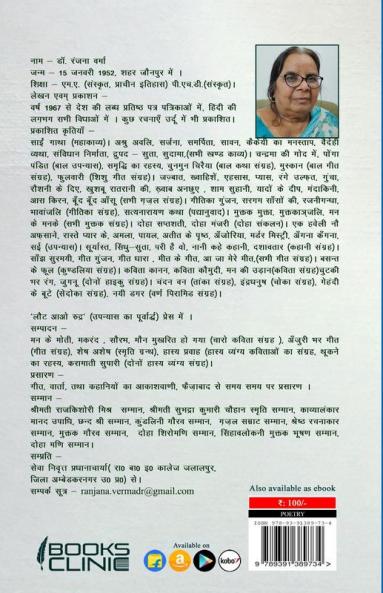 नाम – डॉ. रंजना वर्मा
जन्म – 15 जनवरी 1952, शहर जौनपुर में ।
शिक्षा – एम.ए. (संस्कृत, प्राचीन इतिहास) पी.एच.डी.(संस्कृत)।
लेखन एवम् प्रकाशन –
वर्ष 1967 से देश की लब्ध प्रतिष्ठ पत्र पत्रिकाओं में, हिंदी की
लगभग सभी विधाओं में । कुछ रचनाएँ उर्दू में भी प्रकाशित।
प्रकाशित कृतियाँ –
साईं गाथा (महाकाव्य)। अश्रु अवलि, सर्जना, समर्पिता, सावन, कैकेयी का मनस्ताप, वैदेही
व्यथा, संविधान निर्माता, द्रुपद – सुता, सुदामा,(सभी खण्ड काव्य)। चन्द्रमा की गोद में, पोंगा
पंडित (बाल उपन्यास), समृद्धि का रहस्य, चुनमुन चिरैया (बाल कथा संग्रह), मुस्कान (बाल गीत
संग्रह), फुलवारी (शिशु गीत संग्रह)। जज़्बात, ख्वाहिशें, एहसास, प्यास, रंगे उल्फत, गुंचा,
रौशनी के दिए, खुशबू रातरानी की, ख्वाब अनछुए , शाम सुहानी, यादों के दीप, मंदाकिनी,
आस किरन, बूँद बूँद आँसू (सभी ग़ज़ल संग्रह)। गीतिका गुंजन, सरगम साँसों की, रजनीगन्धा,
भावांजलि (गीतिका संग्रह), सत्यनारायण कथा (पद्यानुवाद)। मुक्तक मुक्ता, मुक्तकाञ्जलि, मन
के मनके (सभी मुक्तक संग्रह)। दोहा सप्तशती, दोहा मंजरी (दोहा संकलन)। एक हवेली नौ
अफ़साने, रास्ते प्यार के, अमला, पायल, अतीत के पृष्ठ, अँजोरिया, मर्डर मिस्ट्री, अँगना कँगना,
सई (उपन्यास)। सूर्यास्त, सिंधु–सुता, परी है वो, नानी कहे कहानी, दशावतार (कहानी संग्रह)।
साँझ सुरमयी, गीत गुंजन, गीत धारा , मीत के गीत, आ जा मेरे मीत,(सभी गीत संग्रह)। बसन्त
के फूल (कुण्डलिया संग्रह)। कविता कानन, कविता कौमुदी, मन की उड़ान(कविता संग्रह)चुटकी
भर रंग, जुगनू (दोनों हाइकु संग्रह)। चंदन वन (तांका संग्रह), इंद्रधनुष (चोका संग्रह), मेंहदी
के बूटे (सेदोका संग्रह), नयी डगर (वर्ण पिरामिड संग्रह)।
'लौट आओ रुद्र' (उपन्यास का पूर्वार्द्ध) प्रेस में ।
सम्पादन –
मन के मोती, मकरंद , सौरभ, मौन मुखरित हो गया (चारों कविता संग्रह ), अँजुरी भर गीत
(गीत संग्रह), शेष अशेष (स्मृति ग्रन्थ), हास्य प्रवाह (हास्य व्यंग्य कविताओं का संग्रह, थूकने
का रहस्य, करामाती सुपारी (दोनों हास्य व्यंग्य संग्रह)।
प्रसारण –
गीत, वार्ता, तथा कहानियों का आकाशवाणी, फैज़ाबाद से समय समय पर प्रसारण ।
सम्मान –
श्रीमती राजकिशोरी मिश्र सम्मान, श्रीमती सुभद्रा कुमारी चौहान स्मृति सम्मान, काव्यालंकार
मानद उपाधि, छन्द श्री सम्मान, कुंडलिनी गौरव सम्मान, ग़ज़ल सम्राट सम्मान, श्रेष्ठ रचनाकार
सम्मान, मुक्तक गौरव सम्मान, दोहा शिरोमणि सम्मान, सिंहावलोकनी मुक्तक भूषण सम्मान,
दोहा मणि सम्मान।
सम्प्रति –
सेवा निवृत्त प्रधानाचार्या( रा0 बा0 इ0 कालेज जलालपुर,
जिला अम्बेडकरनगर उ0 प्र0) से।
सम्पर्क सूत्र – ranjana.vermadr@gmail.com
Also available as ebook
₹: 100/-
POETRY
ISBN 978-93-91389-73-4
9 789391 389734 >
BOOKS
CLINIC
Available on
a
kobo